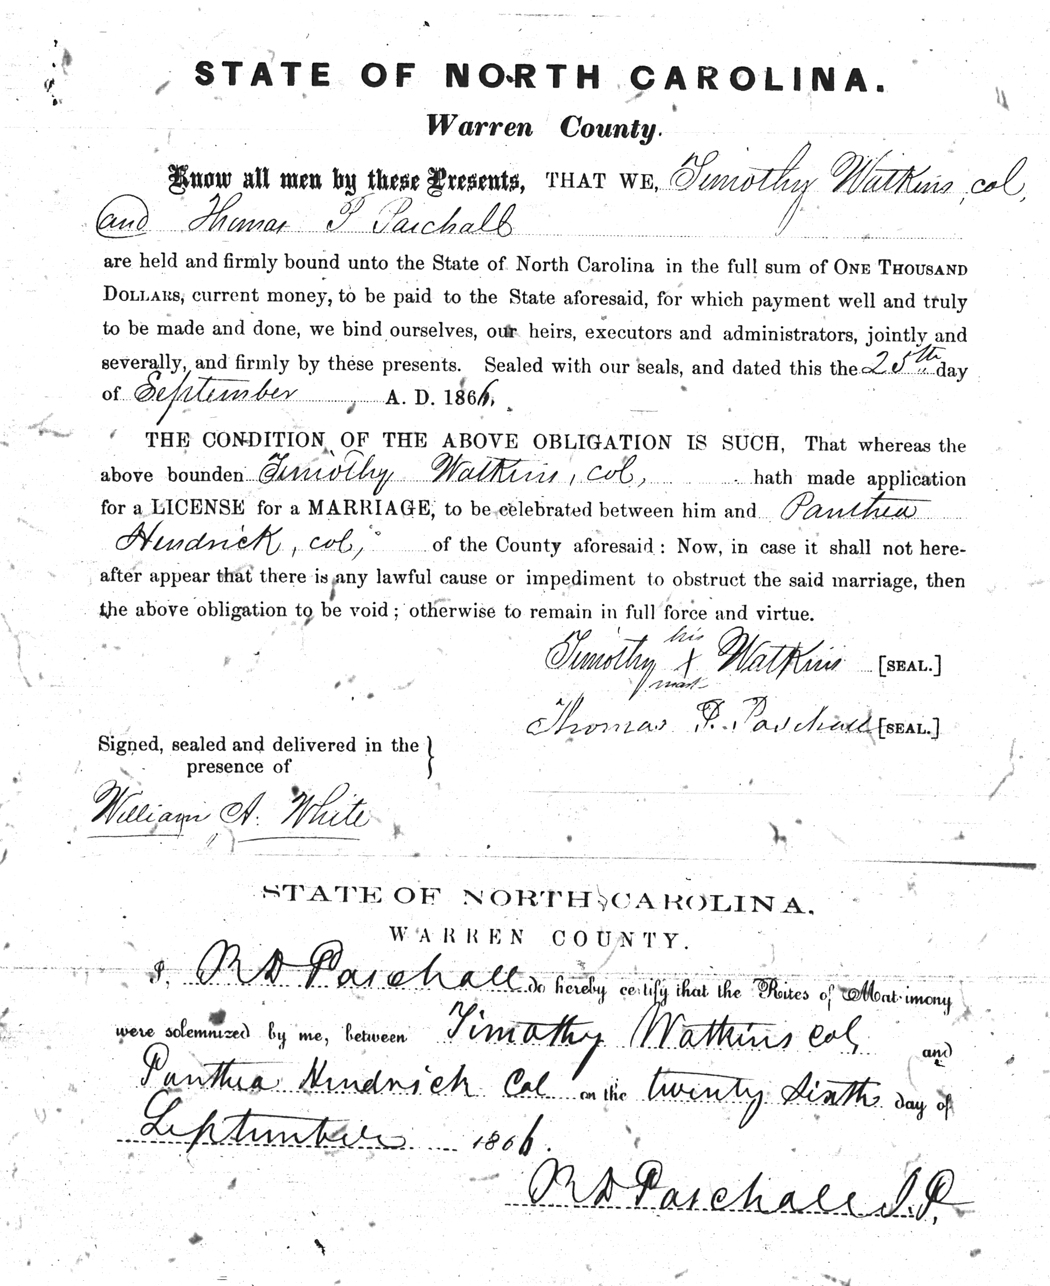 STATE OF NORTH CAROLINA.
Warren County.
Know all men by these Presents, THAT WE, Timothy Watkins, col,
and Thomas P Paschall
are held and firmly bound unto the State of North Carolina in the full sum of ONE THOUSAND
DOLLARS, current money, to be paid to the State aforesaid, for which payment well and truly
to be made and done, we bind ourselves, our heirs, executors and administrators, jointly and
severally, and firmly by these presents. Sealed with our seals, and dated this the 25th day
of September A. D. 1866.
THE CONDITION OF THE ABOVE OBLIGATION IS SUCH, That whereas the
above bounden Timothy Watkins, col, hath made application
for a LICENSE for a MARRIAGE, to be celebrated between him and Panthea
Hendrick, col, of the County aforesaid: Now, in case it shall not here-
after appear that there is any lawful cause or impediment to obstruct the said marriage, then
the above obligation to be void; otherwise to remain in full force and virtue.
his
Timothy X Watkins [SEAL.]
mark
Thomas P. Paschall [SEAL.]
Signed, sealed and delivered in the
presence of
William A. White
STATE OF NORTH CAROLINA,
WARREN COUNTY.
I, R D Paschall do hereby certify that the Rites of Matrimony
were solemnized by me, between Timothy Watkins Col, and
Panthea Hendrick Col on the twenty Sixth day of
September 1866.
R D Paschall J.P.